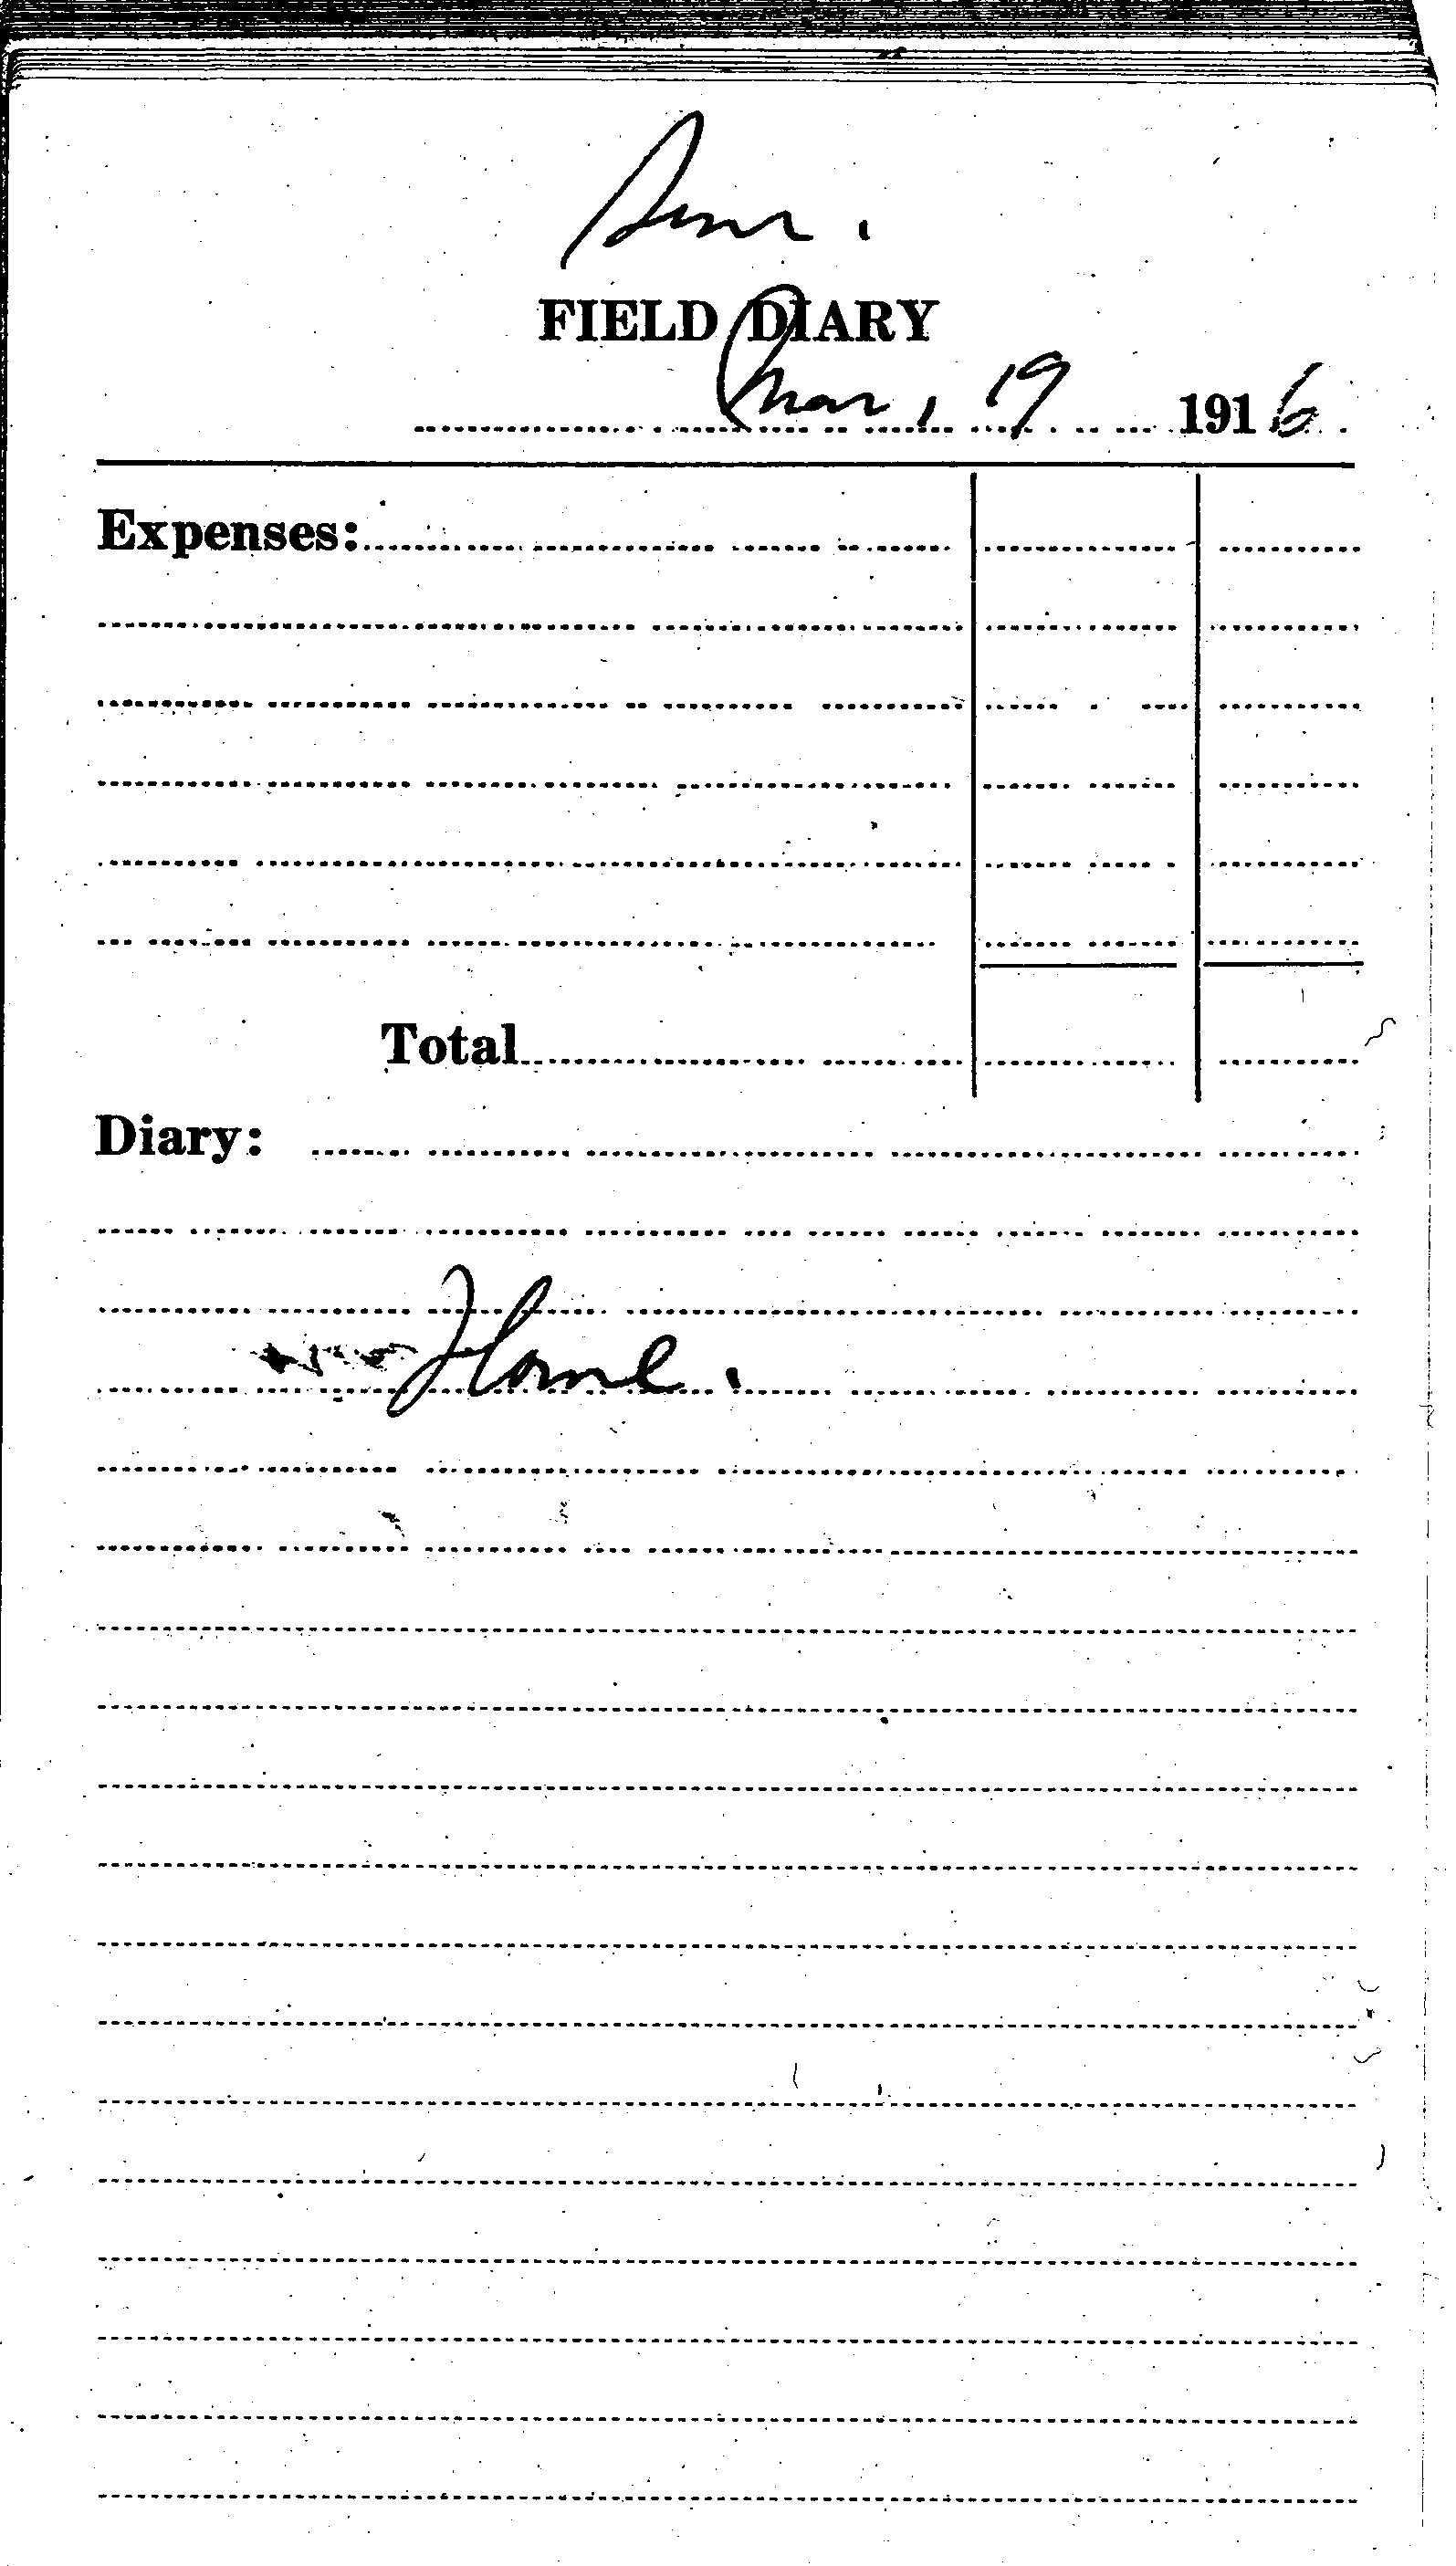 Sun.
FIELD DIARY
Mar. 19 1916
Expenses:
Total
Diary:
Home.